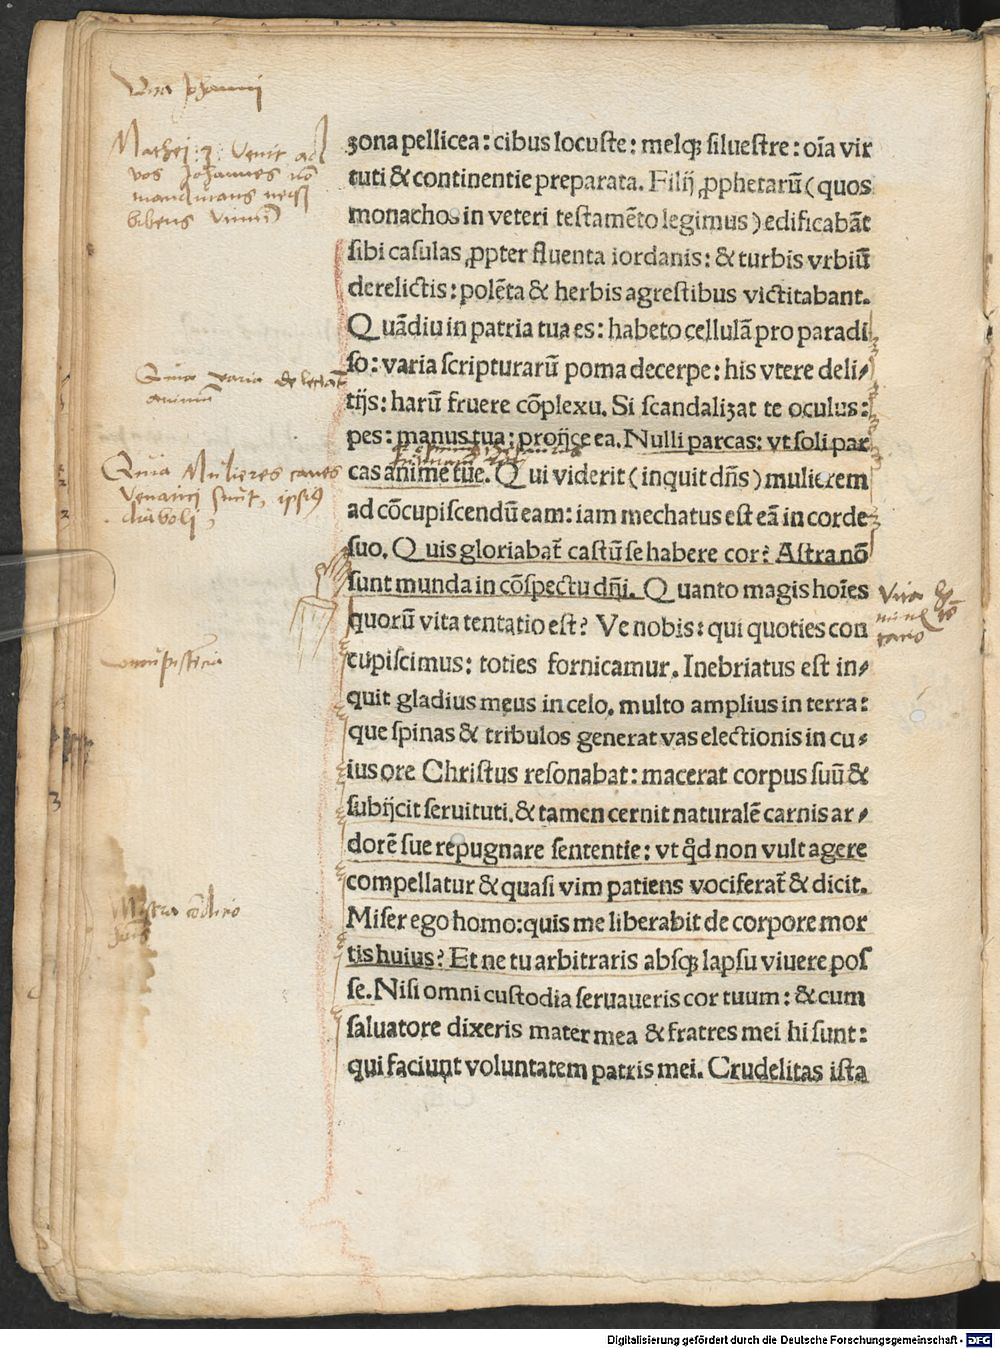 Vita Johannis
Mathei: 3: Venit ad
vos Johannes nō
manducans neqȝ
bibens vinū
ʒona pellicea: cibus locuſte: melqȝ ſilueſtre: oīa vir
tuti & continentie preparata. Filij ꝓphetarū (quos
monachos in veteri teſtamēto legimus) edificabāt
ſibi caſulas ꝓpter fluenta iordanis: & turbis vrbiū
derelictis: polēta & herbis agreſtibus victitabant.
Quādiu in patria tua es: habeto cellulā pro paradi
ſo: varia ſcripturarū poma decerpe: his vtere deli⸗
tijs: harū fruere cōplexu. Si ſcandaliʒat te oculus:
pes: manus tua: projice ea. Nulli parcas: vt ſoli par
cas anime tue. Qui viderit (inquit dn̄s) mulierem
ad cōcupiſcendū eam: iam mechatus eſt eā in corde
ſuo. Quis gloriabat᷑ caſtū ſe habere cor? Aſtra nō
ſunt munda in cōſpectu dn̄i. Quanto magis hoīes
quorū vita tentatio eſt? Ve nobis: qui quoties con
cupiſcimus: toties fornicamur. Inebriatus eſt in⸗
quit gladius meus in celo. multo amplius in terra:
que ſpinas & tribulos generat vas electionis in cu⸗
ius ore Chriſtus reſonabat: macerat corpus ſuū &
ſubijcit ſeruituti. & tamen cernit naturalē carnis ar⸗
dorē ſue repugnare ſententie: vt qd̄ non vult agere
compellatur & quaſi vim patiens vociferat᷑ & dicit.
Miſer ego homo: quis me liberabit de corpore mor
tis huius? Et ne tu arbitraris abſqȝ lapſu viuere poſ
ſe. Niſi omni cuſtodia ſeruaueris cor tuum: & cum
ſaluatore dixeris mater mea & fratres mei hi ſunt:
qui faciunt voluntatem patris mei. Crudelitas iſta
Quia varia delectāt
animū
Quia Mulieres canes
Venatici sunt, ipsiꝰ
diaboli,
Concupiscencia
Vita
3
Digitalisierung gefördert durch die Deutsche Forschungsgemeinschaft - DFG